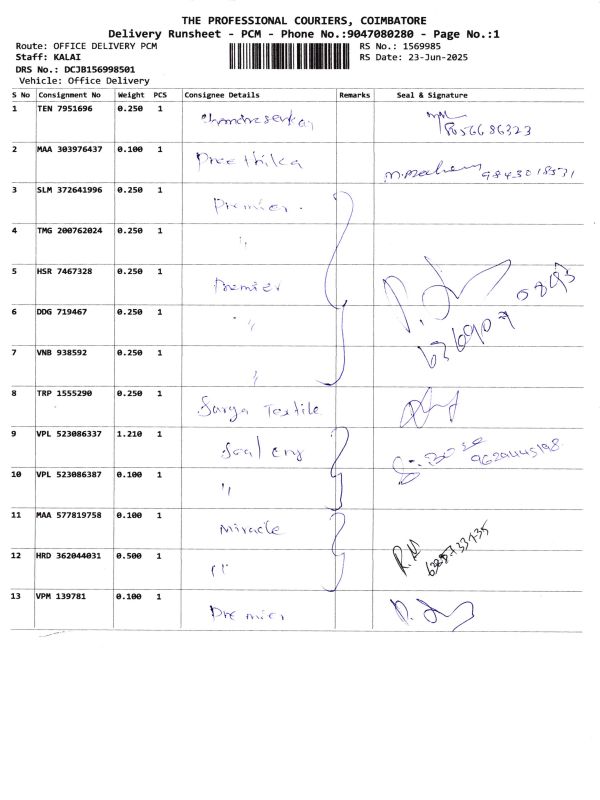 THE PROFESSIONAL COURIERS, COIMBATORE
Delivery Runsheet - PCM - Phone No.:9047080280 - Page No.:1
Route: OFFICE DELIVERY PCM RS No.: 1569985
Staff: KALAI RS Date: 23-Jun-2025
DRS No.: DCJB156998501
Vehicle: Office Delivery
S No Consignment No Weight PCS Consignee Details Remarks Seal & Signature
1 TEN 7951696 0.250 1 Chandrasekar 8056686323
2 MAA 303976437 0.100 1 Preethika 9843018531
3 SLM 372641996 0.250 1 Premier.
4 TMG 200762024 0.250 1 "
5 HSR 7467328 0.250 1 Premier
6 DDG 719467 0.250 1 "
7 VNB 938592 0.250 1 "
8 TRP 1555290 0.250 1 Surya Textile
9 VPL 523086337 1.210 1 9629445198
10 VPL 523086387 0.100 1 "
11 MAA 577819758 0.100 1 Miracle R.M
12 HRD 362044031 0.500 1 "
13 VPM 139781 0.100 1 Premier